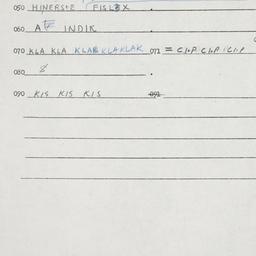 050 HINERSTE FISLEX
060 A INDIK
070 KLA KLA KLAKKLAKLAK 071 = CLP CLP CLP
080 8
090 KIS KIS KIS 091